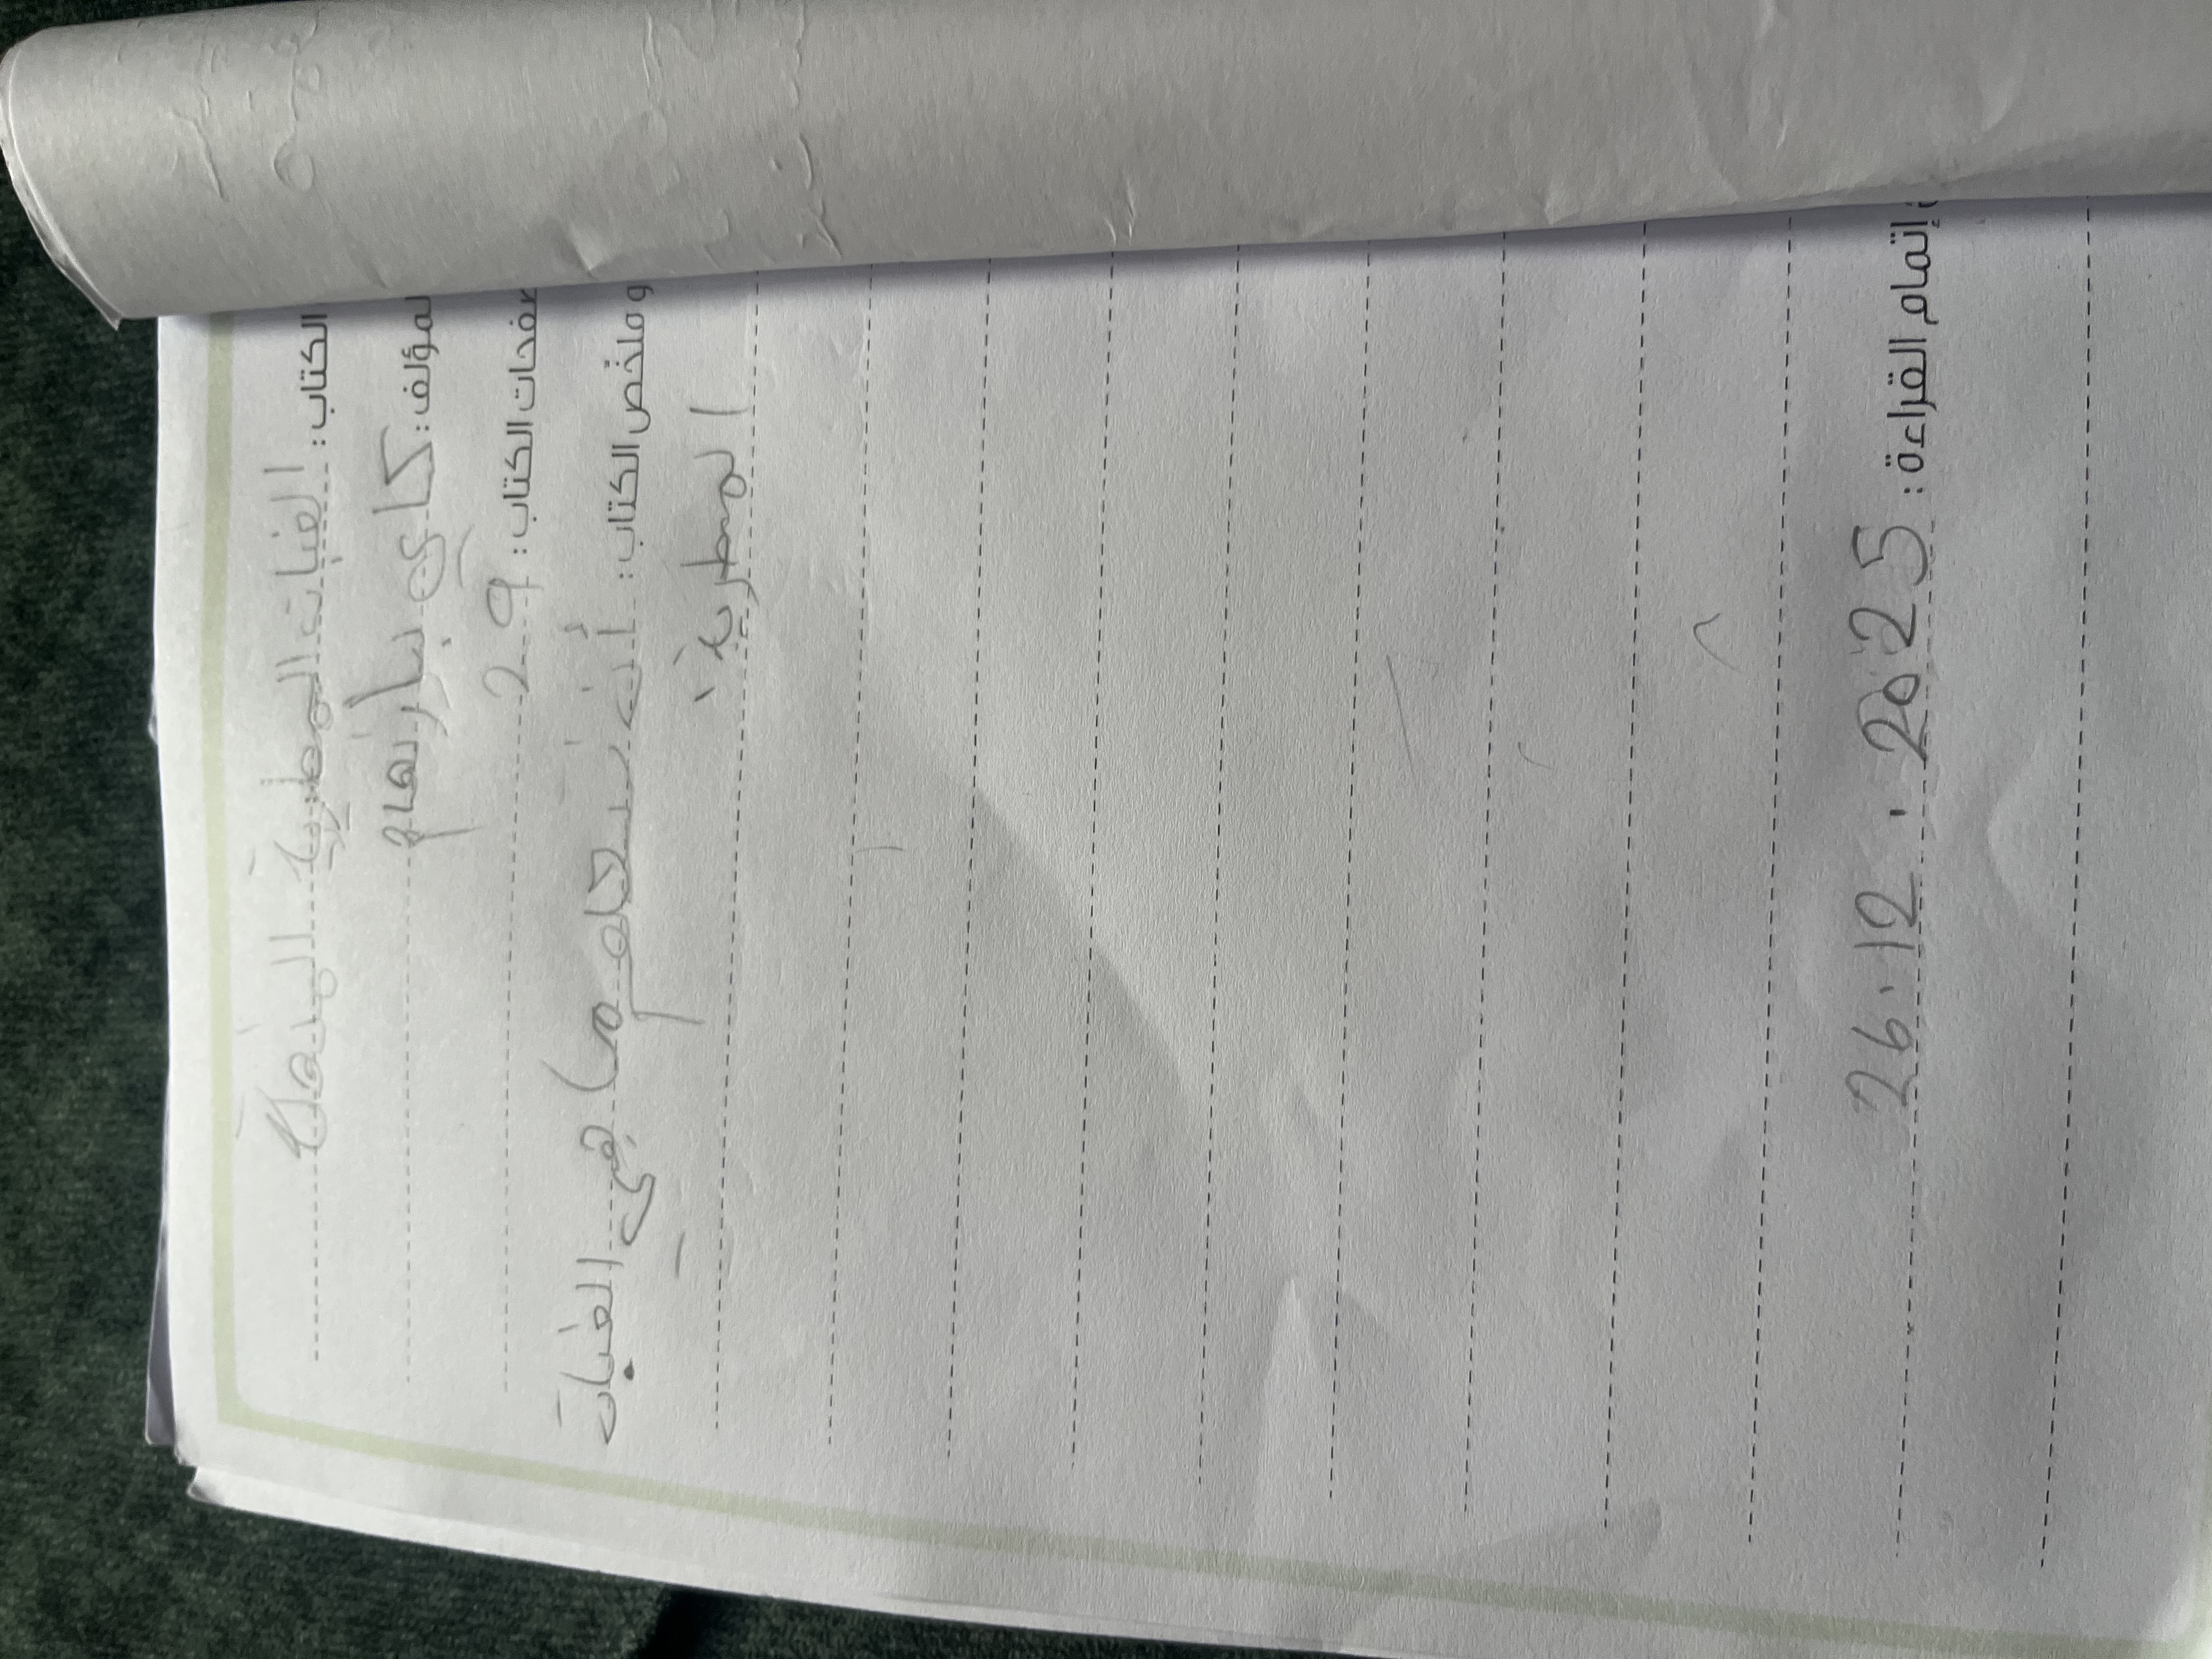 الكتاب: الغبات المطرية المنقذة
لمؤلف: كاي بارنهام
صفحات الكتاب: 29
و ملخص الكتاب: أن نتعلم ما في الغبات
المطرية
إتمام القراءة: 26.12.2025